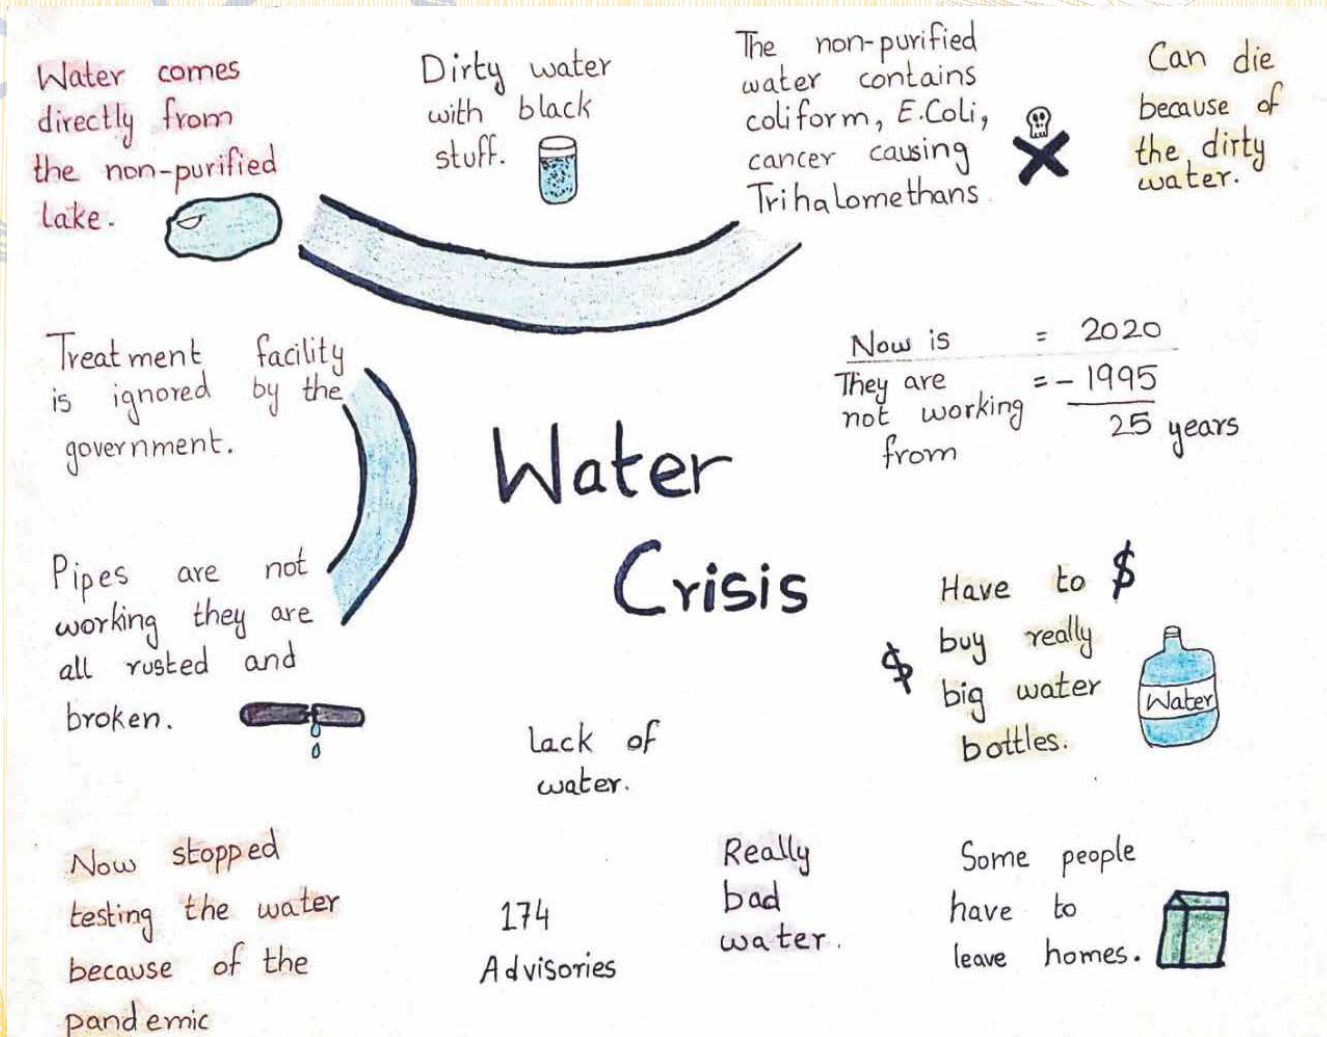 Water comes
directly from
the non-purified
lake.
Dirty water
with black
stuff.
The non-purified
water contains
coliform, E.Coli,
cancer causing
Trihalomethans
Can die
because of
the dirty
water.
Treatment facility
is ignored by the
government.
Now is = 2020
They are = - 1995
not working
from
25 years
Water
Crisis
Pipes are not
working they are
all rusted and
broken.
Have to $
buy really
$
big water
bottles.
Water
lack of
water.
Now stopped
testing the water
because of the
pandemic
174
Advisories
Really
bad
water.
Some people
have to
leave homes.